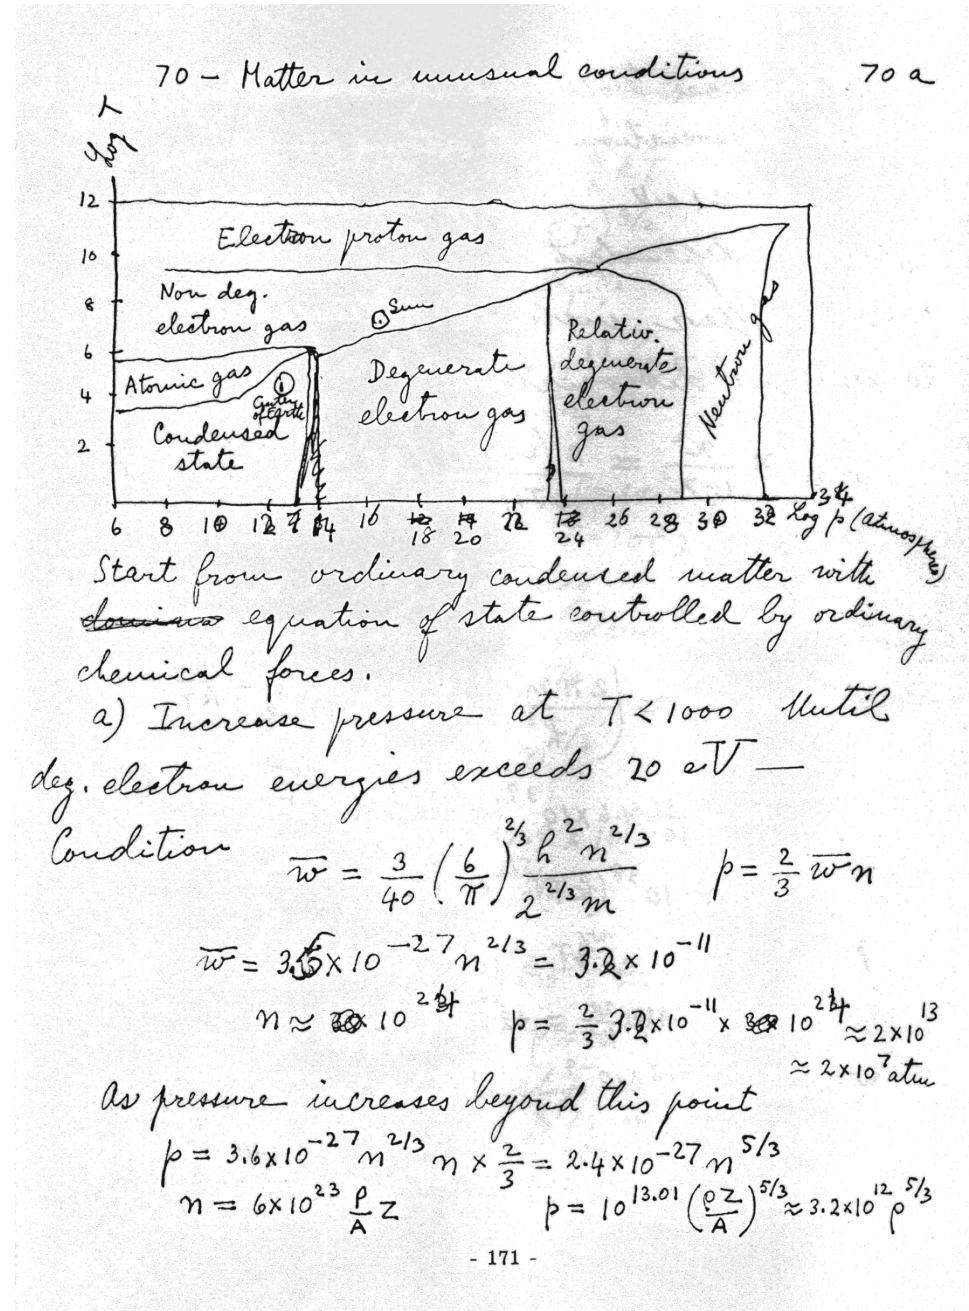 70 – Matter in unusual conditions 70 a
Log T
12
Electron proton gas
10
Non deg.
electron gas
8
Sun
6
Atomic gas
Relativ.
degenerate
electron
gas
Degenerate
electron gas
Neutron gas
4
Center
of Earth
Condensed
state
2
6 8 10 12 14 16 18 20 22 24 26 28 30 32 34
Log p (atmospheres)
Start from ordinary condensed matter with
equation of state controlled by ordinary
chemical forces.
a) Increase pressure at T < 1000 Until
deg. electron energies exceeds 20 eV —
Condition w̄ = 3/40 (6/π)^2/3 h^2 n^2/3 / 2^2/3 m p = 2/3 w̄ n
w̄ = 3.6 × 10^-27 n^2/3 = 3.2 × 10^-11
n ≈ 10^24 p = 2/3 3.2 × 10^-11 × 10^24 ≈ 2 × 10^13
≈ 2 × 10^7 atm
As pressure increases beyond this point
p = 3.6 × 10^-27 n^2/3 n × 2/3 = 2.4 × 10^-27 n^5/3
n = 6 × 10^23 ρ/A Z p = 10^13.01 (ρZ/A)^5/3 ≈ 3.2 × 10^12 ρ^5/3
- 171 -